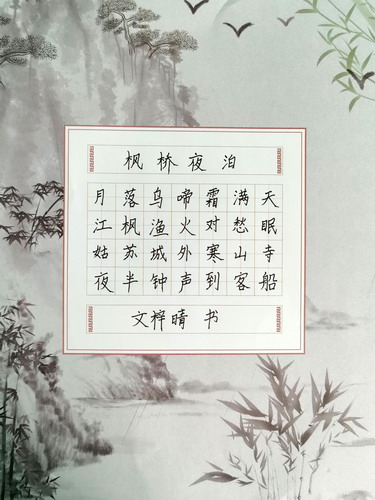 枫桥夜泊
月落乌啼霜满天
江枫渔火对愁眠
姑苏城外寒山寺
夜半钟声到客船
文梓晴 书